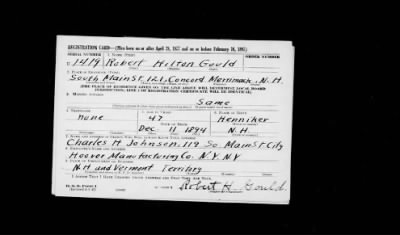 REGISTRATION CARD—(Men born on or after April 28, 1877 and on or before February 16, 1897)
SERIAL NUMBER 1. NAME (Print) ORDER NUMBER
U 1419 Robert Hilton Gould
2. PLACE OF RESIDENCE (Print)
South Main St. 121, Concord Merrimack, N.H.
[THE PLACE OF RESIDENCE GIVEN ON THE LINE ABOVE WILL DETERMINE LOCAL BOARD
JURISDICTION; LINE 2 OF REGISTRATION CERTIFICATE WILL BE IDENTICAL]
3. MAILING ADDRESS
Same
4. TELEPHONE 5. AGE IN YEARS 6. PLACE OF BIRTH
none 47 Henniker
Dec 11 1894 N.H.
7. NAME AND ADDRESS OF PERSON WHO WILL ALWAYS KNOW YOUR ADDRESS
Charles H Johnson, 119 So Main St. City
8. EMPLOYER'S NAME AND ADDRESS
Hoover Manufacturing Co. N.Y. NY
9. PLACE OF EMPLOYMENT OR BUSINESS
N.H. and Vermont Territory
I AFFIRM THAT I HAVE VERIFIED ABOVE ANSWERS AND THAT THEY ARE TRUE.
D. S. S. Form 1
Robert H Gould.